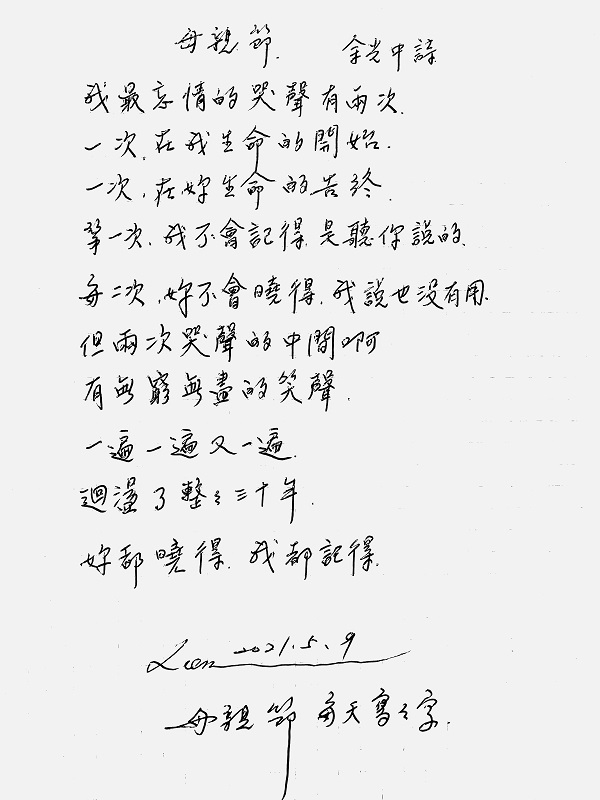 母親節. 余光中詩
我最忘情的哭聲有兩次.
一次,在我生命的開始.
一次,在妳生命的告終.
第一次,我不會記得,是聽你說的.
第二次,妳不會曉得,我說也沒有用.
但兩次哭聲的中間啊
有無窮無盡的笑聲.
一遍一遍又一遍.
迴盪了整々三十年.
妳都曉得,我都記得.
2021.5.9
母親節 每天寫々字.